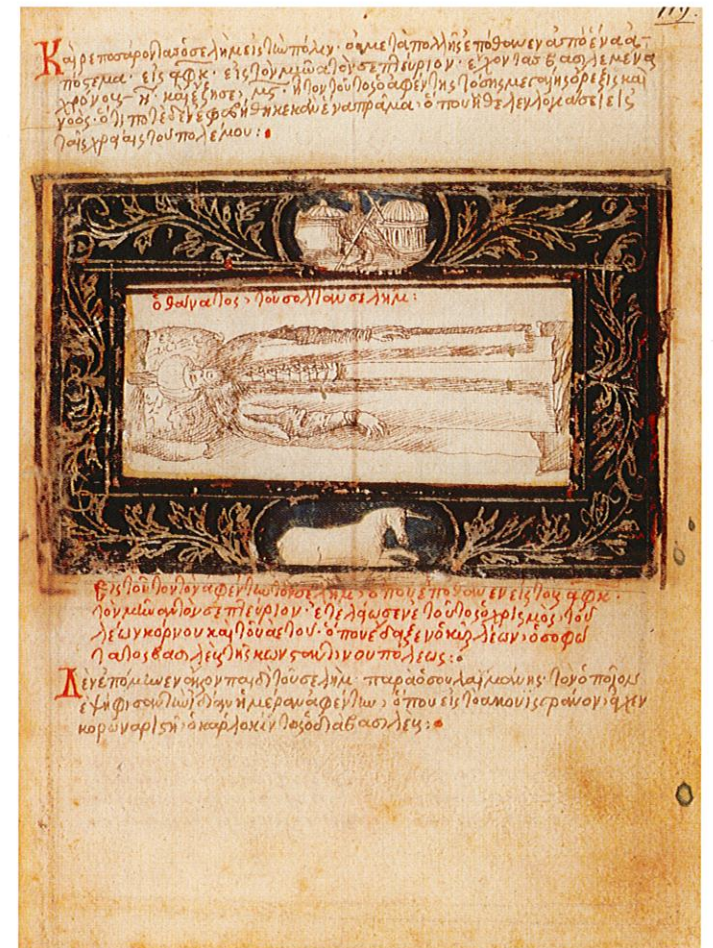 119.
Καὶ ρεποσάροντας ὁ σελὴμ εἰς τὴν πόλιν. μετὰ πολλῆς ἐπόθανεν ἀπὸ ἕνα ἀ-
πόστεμα. εἰς ͵αφκ. εἰς τὸν μῆνα τὸν σεπτεύριον. ἔχοντας βασιλεμένα
χρόνους η καὶ ἔζησε, μς ἦτον τοῦτος ὁ ἀφέντης τόσης μεγάλης ὄρεξις καὶ
νοὸς. ὅτι ποτὲ δὲν ἐφοβήθηκε κανένα πράμα. ὁποῦ ἤθελεν λογιάσει εἰς
ταῖς χρείαις τοῦ πολέμου:
ὁ θάνατος, τοῦ σολτὰν σελήμ:
Εἰς τοῦτον τὸν ἀφέντην τὸν σελὴμ, ὁποῦ ἐπόθανεν εἰς τοὺς ͵αφκ.
τὸν μῆναν τὸν σεπτεύριον. ἐτελίωσεν ἐτοῦτος ὁ χρισμὸς, τοῦ
λεωνκόρνου καὶ τοῦ ἀετοῦ. ὁποῦ ἔδαξεν ὁ κὺρ λέων, ὁ σοφώ
τατος βασιλεὺς τῆς κωνσταντινουπόλεως:
Δὲν ἐπόμεινεν ἄλλον παιδὶ τοῦ σελὴμ παρὰ ὁ σουλαϊμάνης. τὸν ὁποῖον
ἐψήφισαν τὴν ἰδίαν ἡμέραν ἀφέντην, ὁποῦ εἰς τὸ ἀκουϊσγράνον ἦχεν
κορωναριστῆ, ὁ κάρλο κίντος